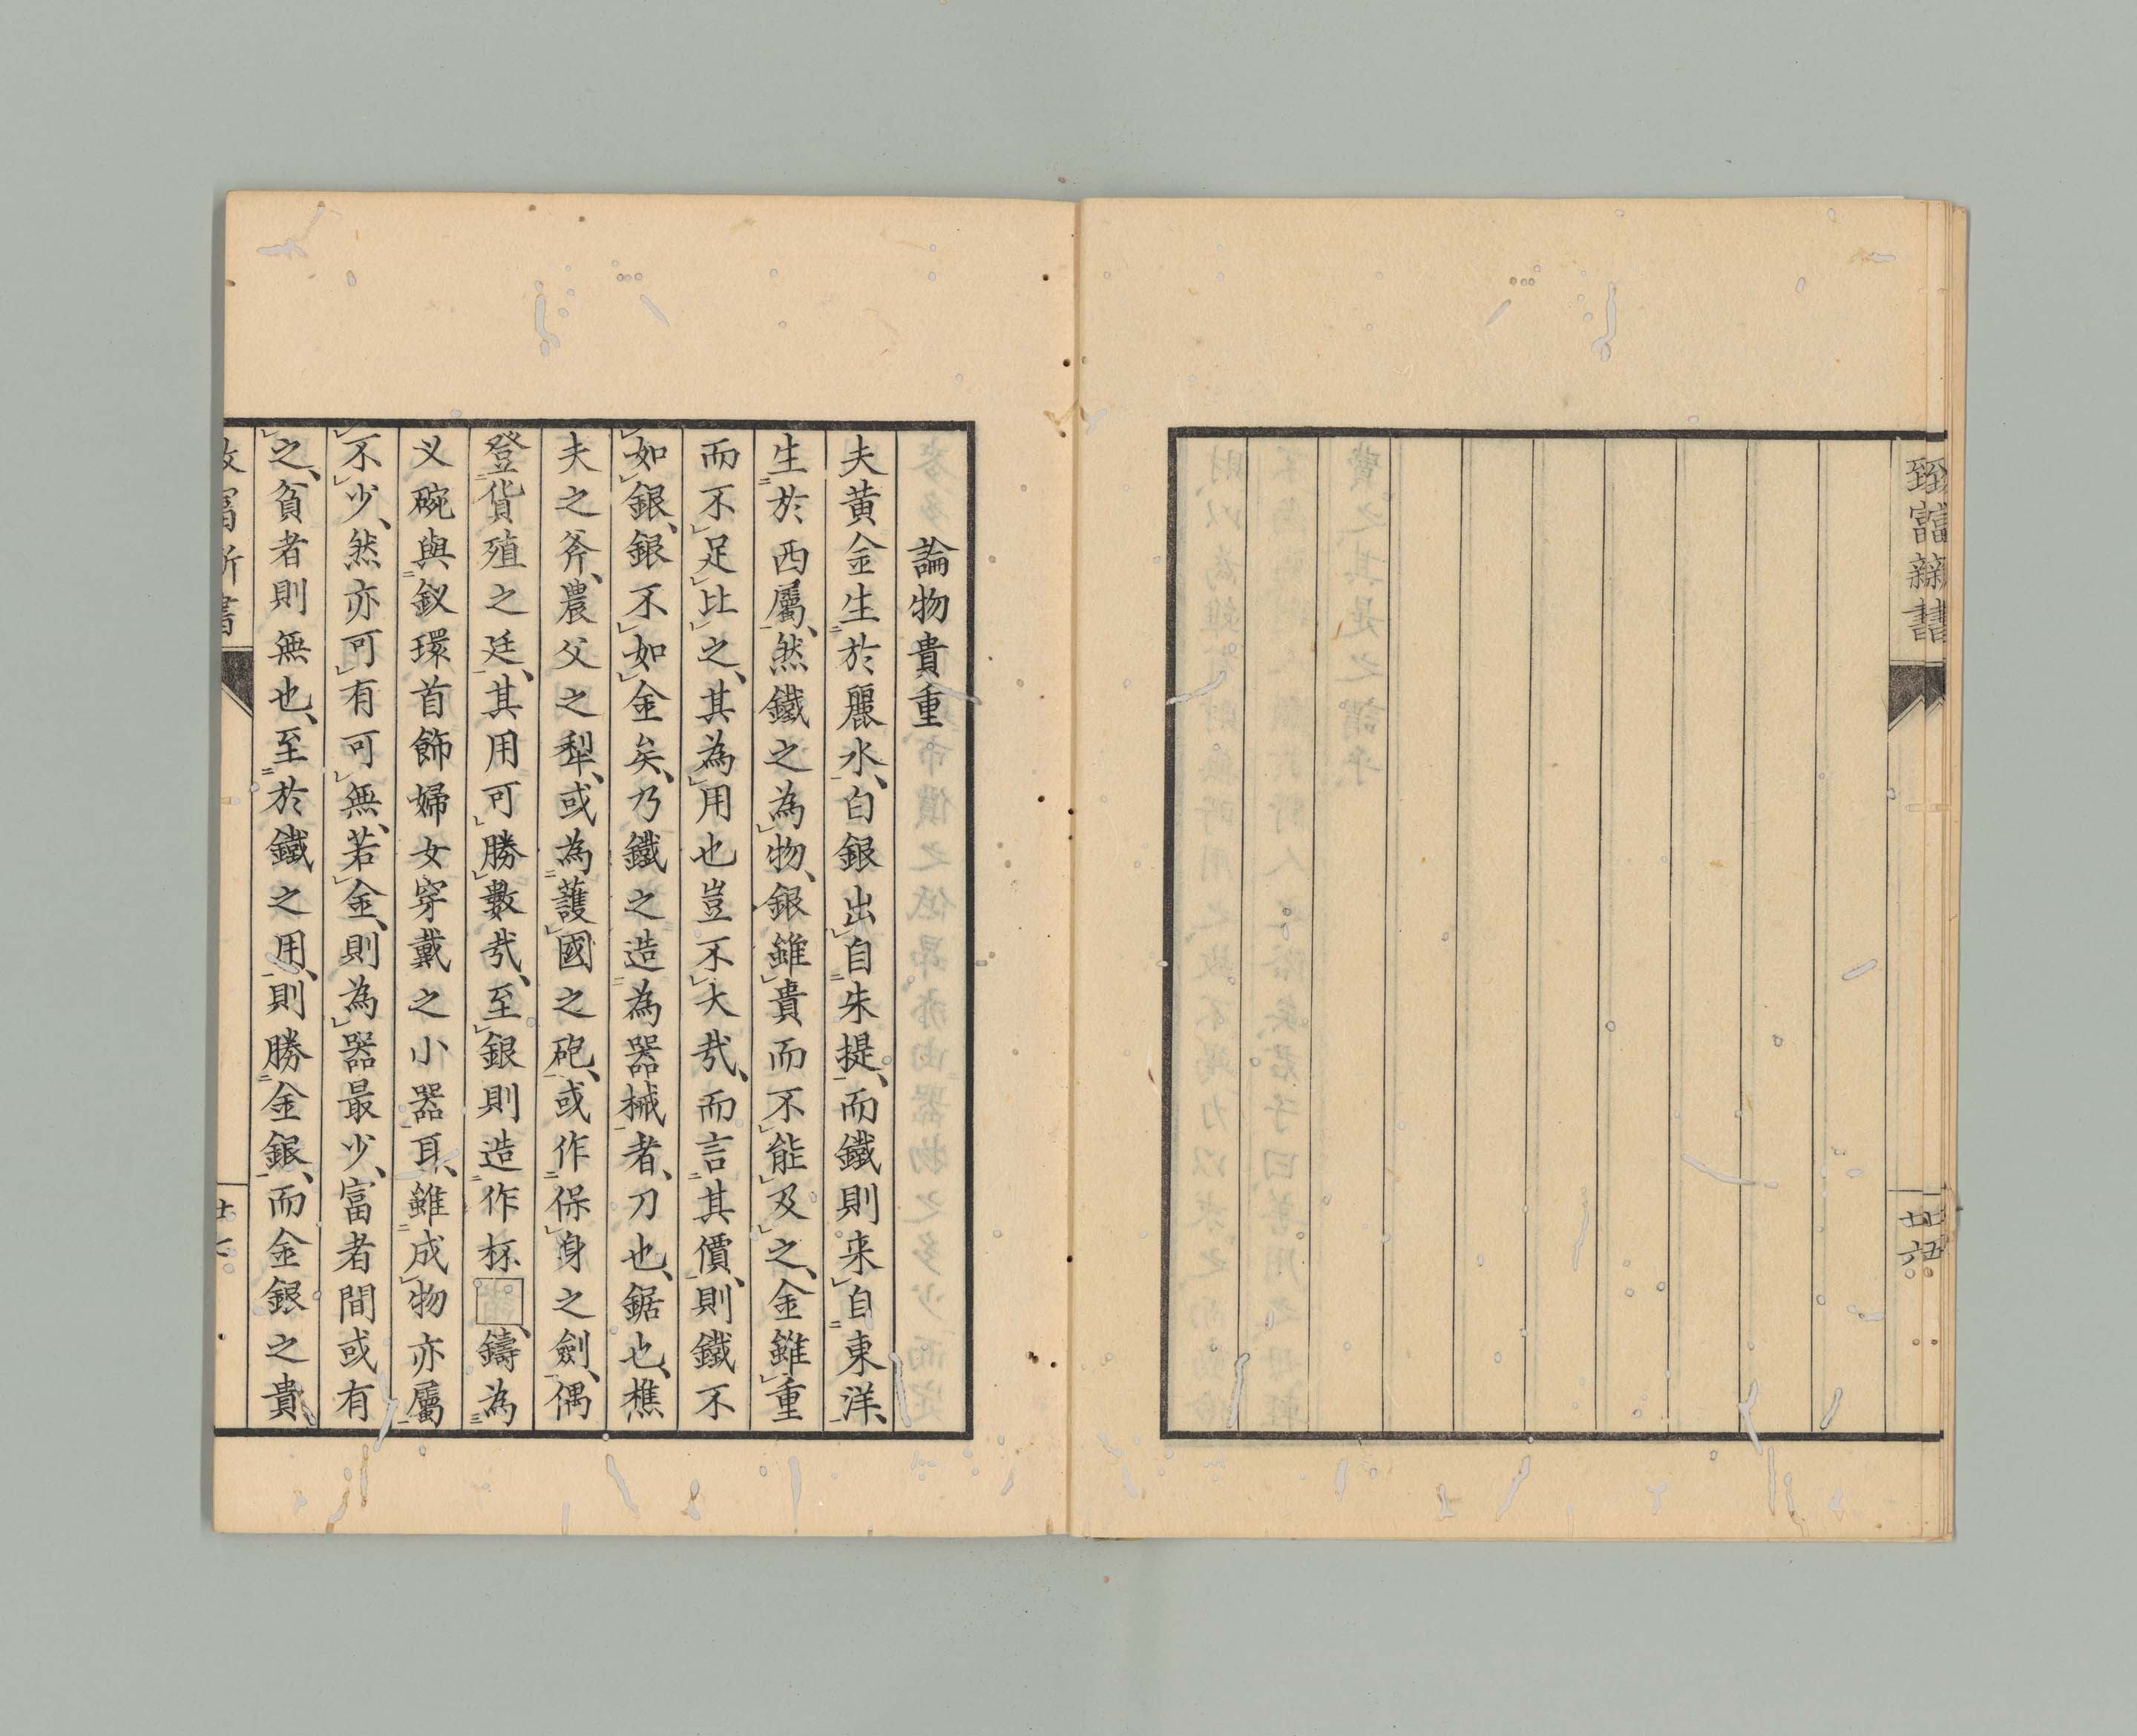 致富新書
論物貴重
夫黃金生於麗水、白銀出自朱提、而鐵則来自東洋、
生於西屬、然鐵之為物、銀雖貴而不能及之、金雖重
而不足比之、其為用也豈不大哉、而言其價、則鐵不
如銀、銀不如金矣、乃鐵之造為器械者、刀也、鋸也、樵
夫之斧、農父之犁、或為護國之砲、或作保身之劍、偶
登貨殖之廷、其用可勝數哉、至銀則造作杯、鑄為
义碗與釵環首飾婦女穿戴之小器耳、雖成物亦屬
不少、然亦可有可無、若金、則為器最少、富者間或有
之、貧者則無也、至於鐵之用、則勝金銀、而金銀之貴